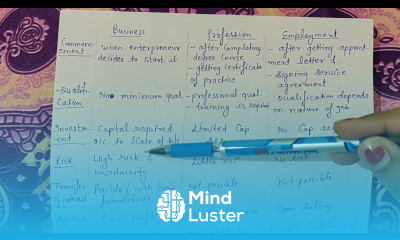 Business Profession Employment
Commenc- when enterpreneur - after completing - after getting appoint-
ement decides to start it degree course ment letter &
- getting certificate - signing service
of practice agreement
- Qualifi- No minimum qual. - professional qual. Qualification depends
cation - training is required on nature of job
Investm- Capital required Limited Cap. No Cap.
ent acc. to scale of b/s
Risk High risk & Little risk No risk
uncertainty
Transfer Possible with some Not possible Not possible
of interest formalities
Mind
Luster